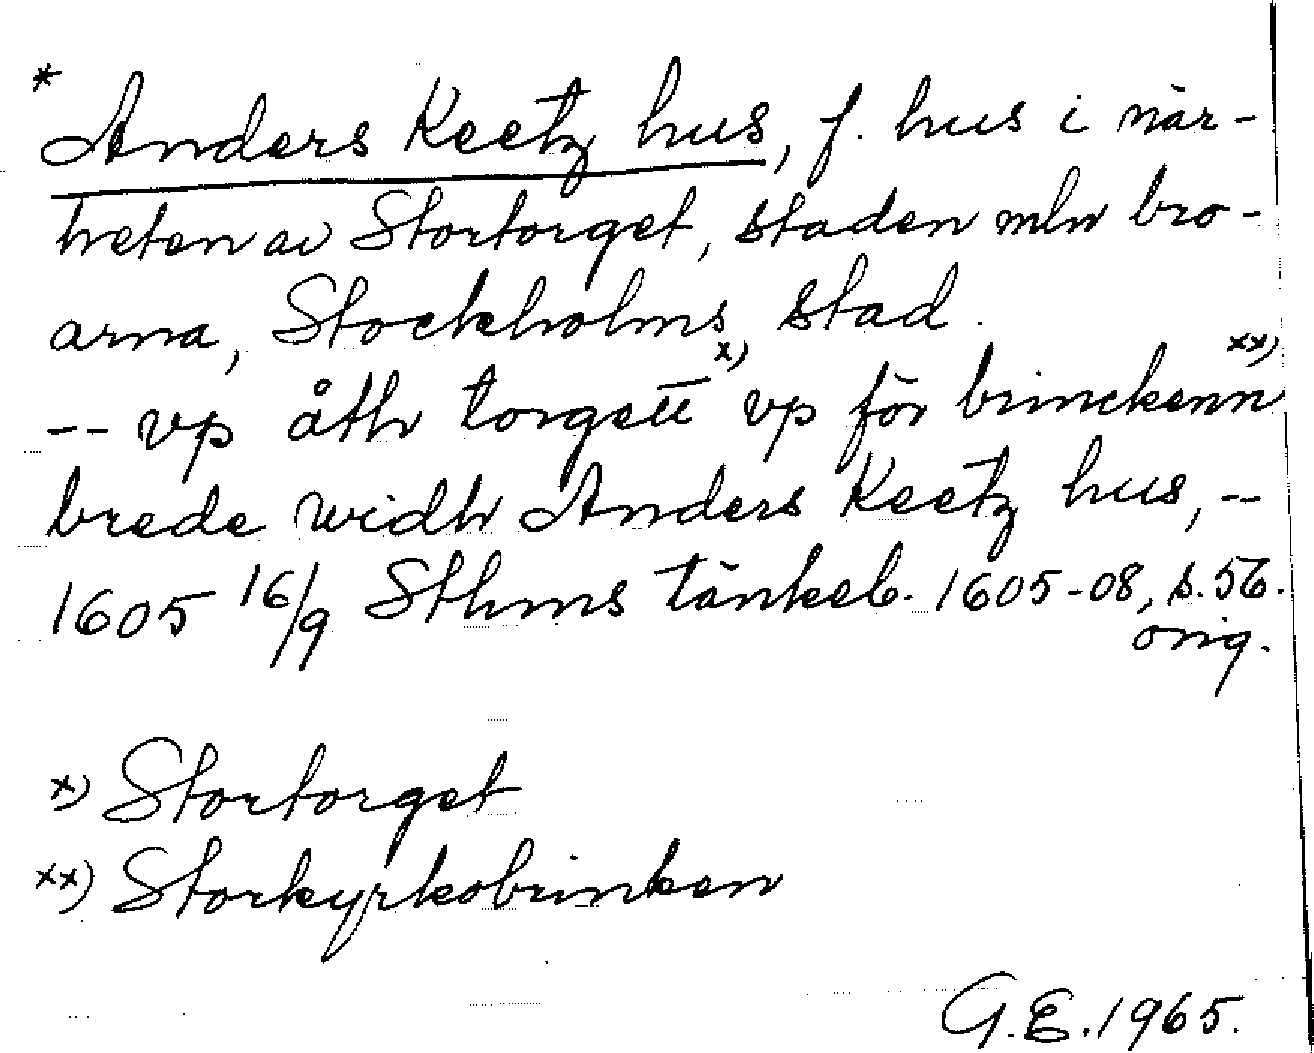 * Anders Keetz hus, f. hus i när-
heten av Stortorget, staden mln bro-
arna, Stockholms stad.
-- vp åth torgett x) vp för brinckenn xx)
brede widh Anders Keetz hus, --
1605 16/9 Sthms tänkeb. 1605-08, s. 56.
orig.
x) Stortorget
xx) Storkyrkobrinken
G.E. 1965.